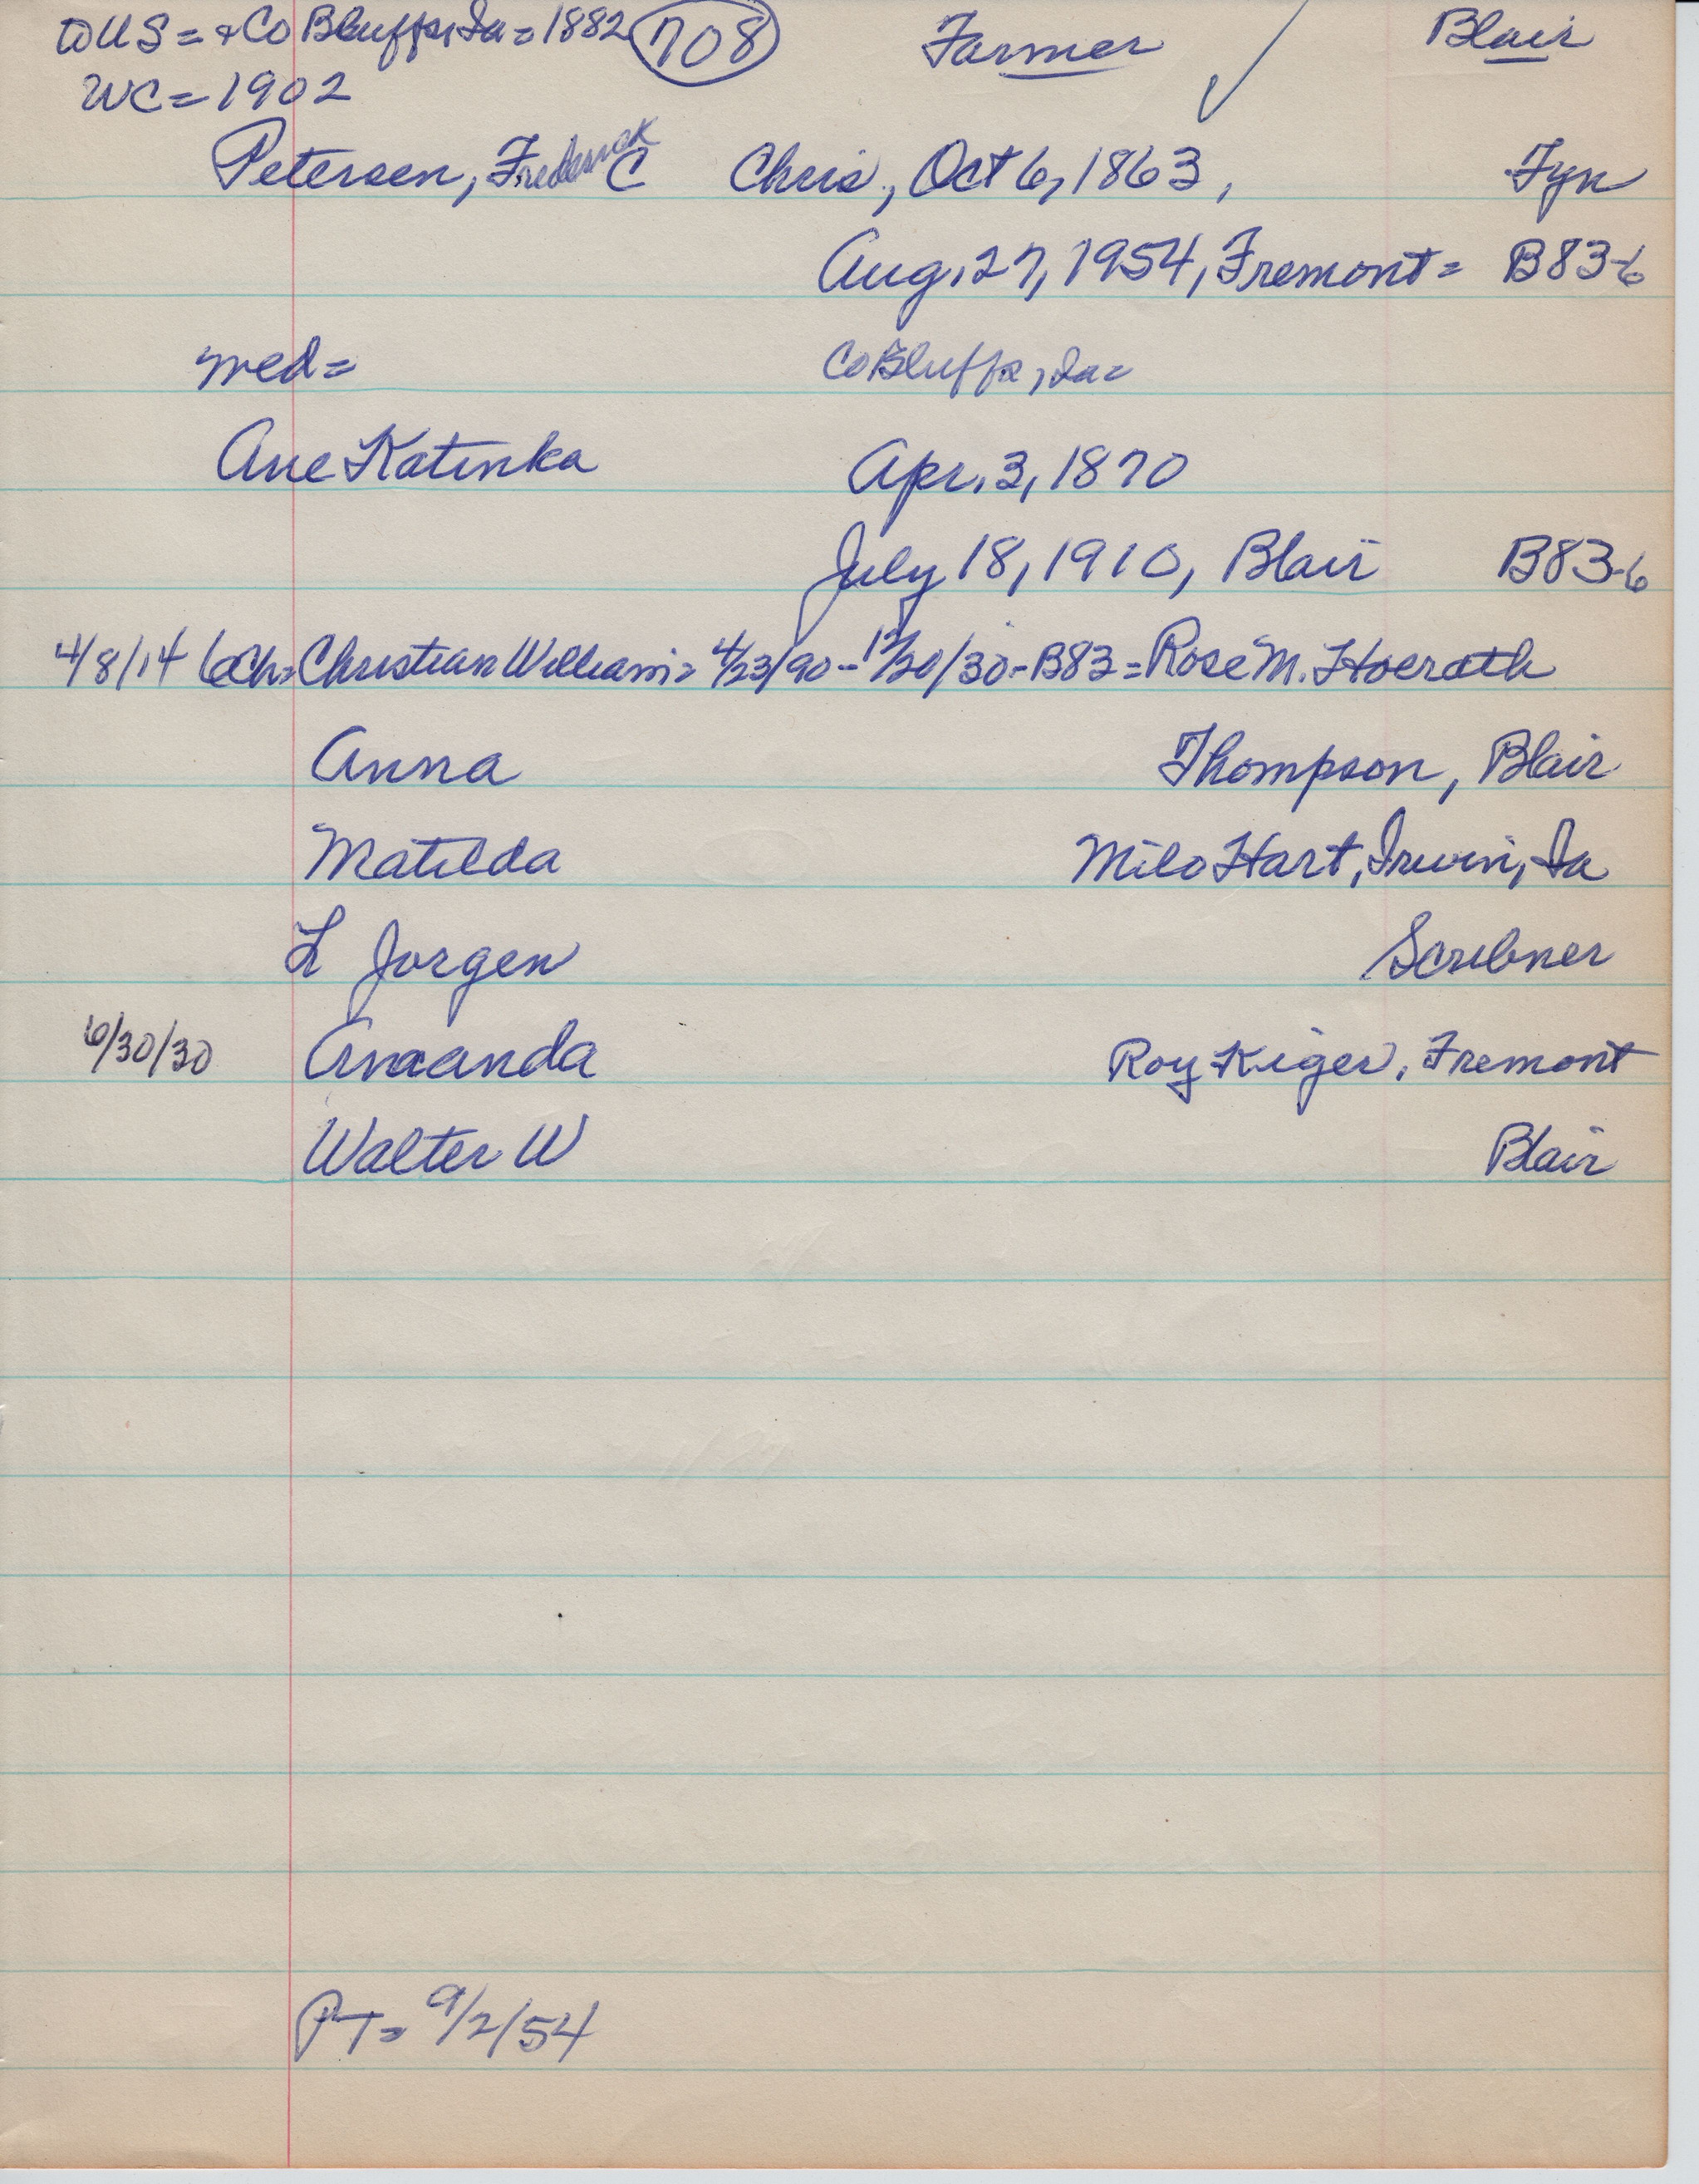 WUS = + Co Bluffs, Ia = 1882 708 Farmer Blair
WC = 1902
Petersen, Frederick C Chris, Oct 6, 1863, Fyn
Aug. 27, 1954, Fremont = B83-6
med = Co Bluffs, Ia =
Ane Katinka Apr. 3, 1870
July 18, 1910, Blair B83-6
4/8/14 6Ch = Christian William = 4/23/90 - 12/30/30 - B83 = Rose M. Hoerath
Anna Thompson, Blair
Matilda Milo Hart, Irwin, Ia
L Jorgen Scribner
6/30/30 Amanda Roy Kiger, Fremont
Walter W Blair
PT = 9/2/54